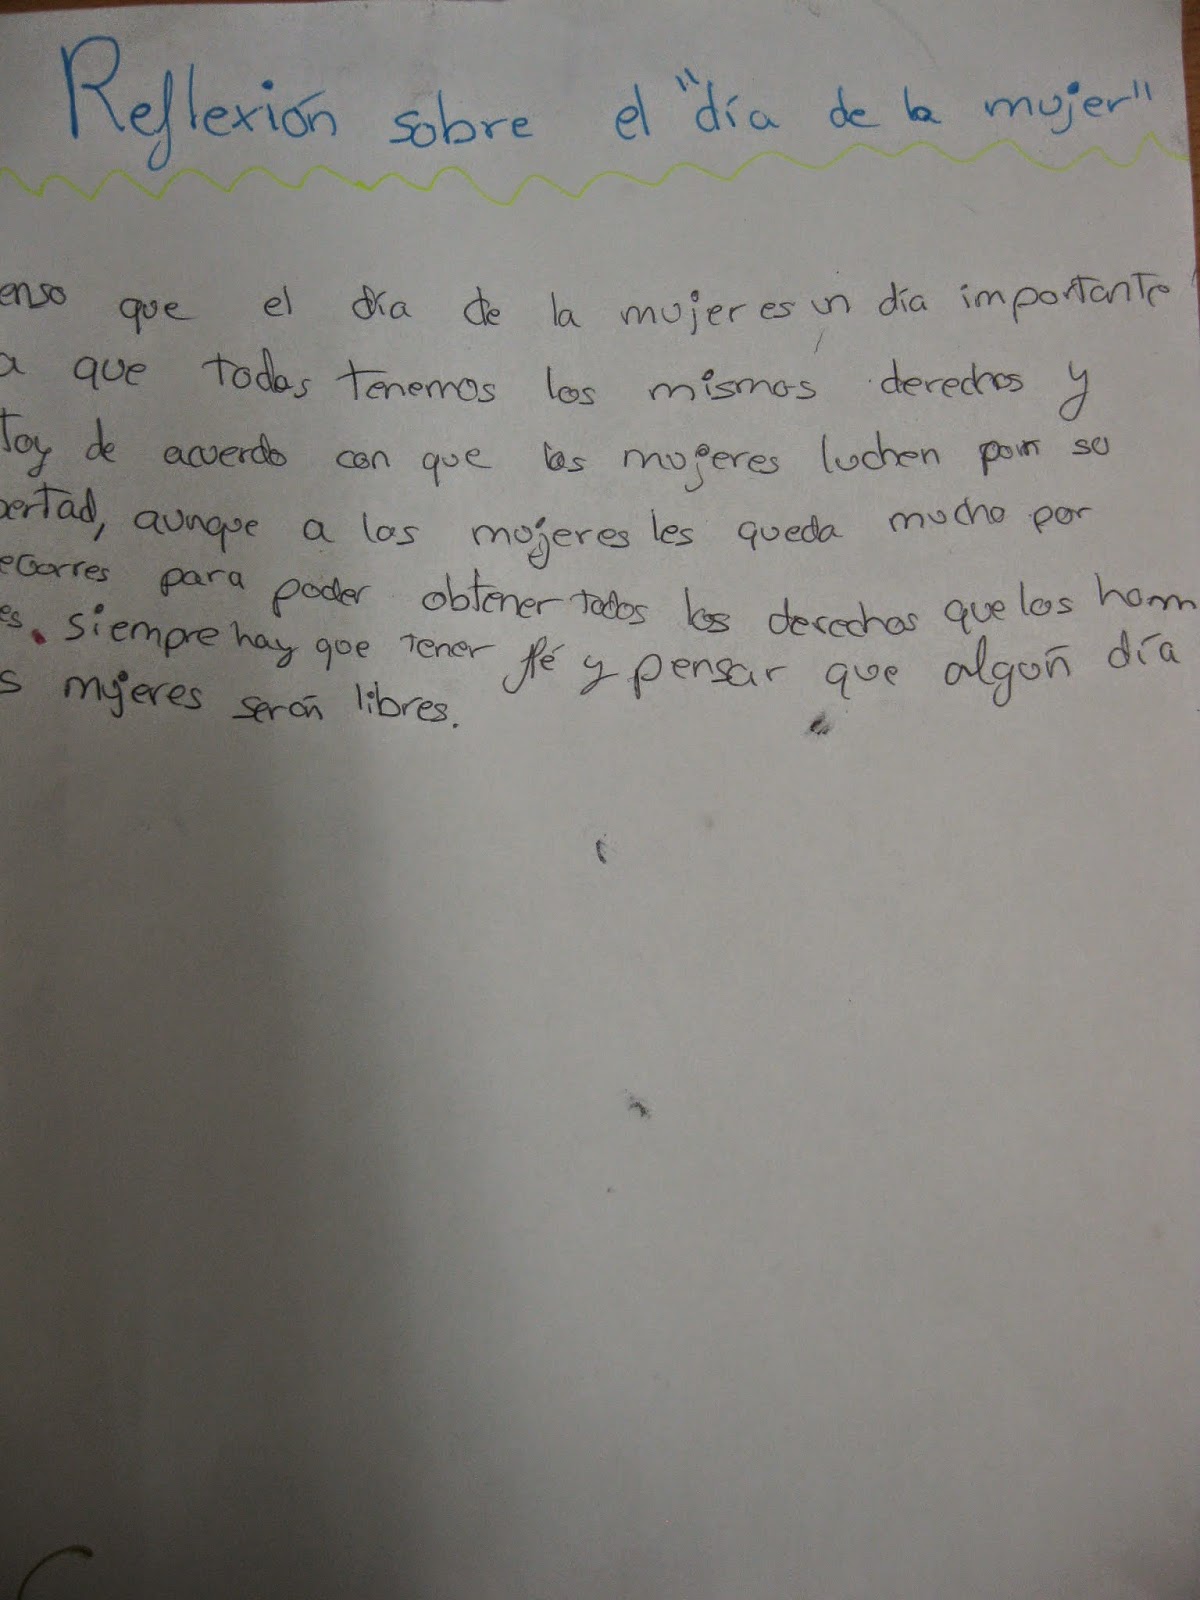 Reflexión sobre el "día de la mujer"
enso que el día de la mujer es un día importante
a que todas tenemos los mismos derechos y
toy de acuerdo con que las mujeres luchen por su
bertad, aunque a las mujeres les queda mucho por
ecorres para poder obtener todos los derechos que los hom
es. siempre hay que tener fé y pensar que algún día
s mujeres serán libres.